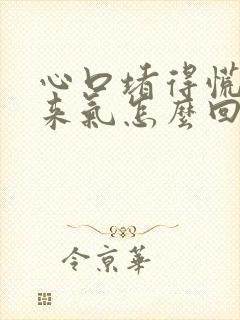 心口堵得慌
来氣怎麼回
令京華